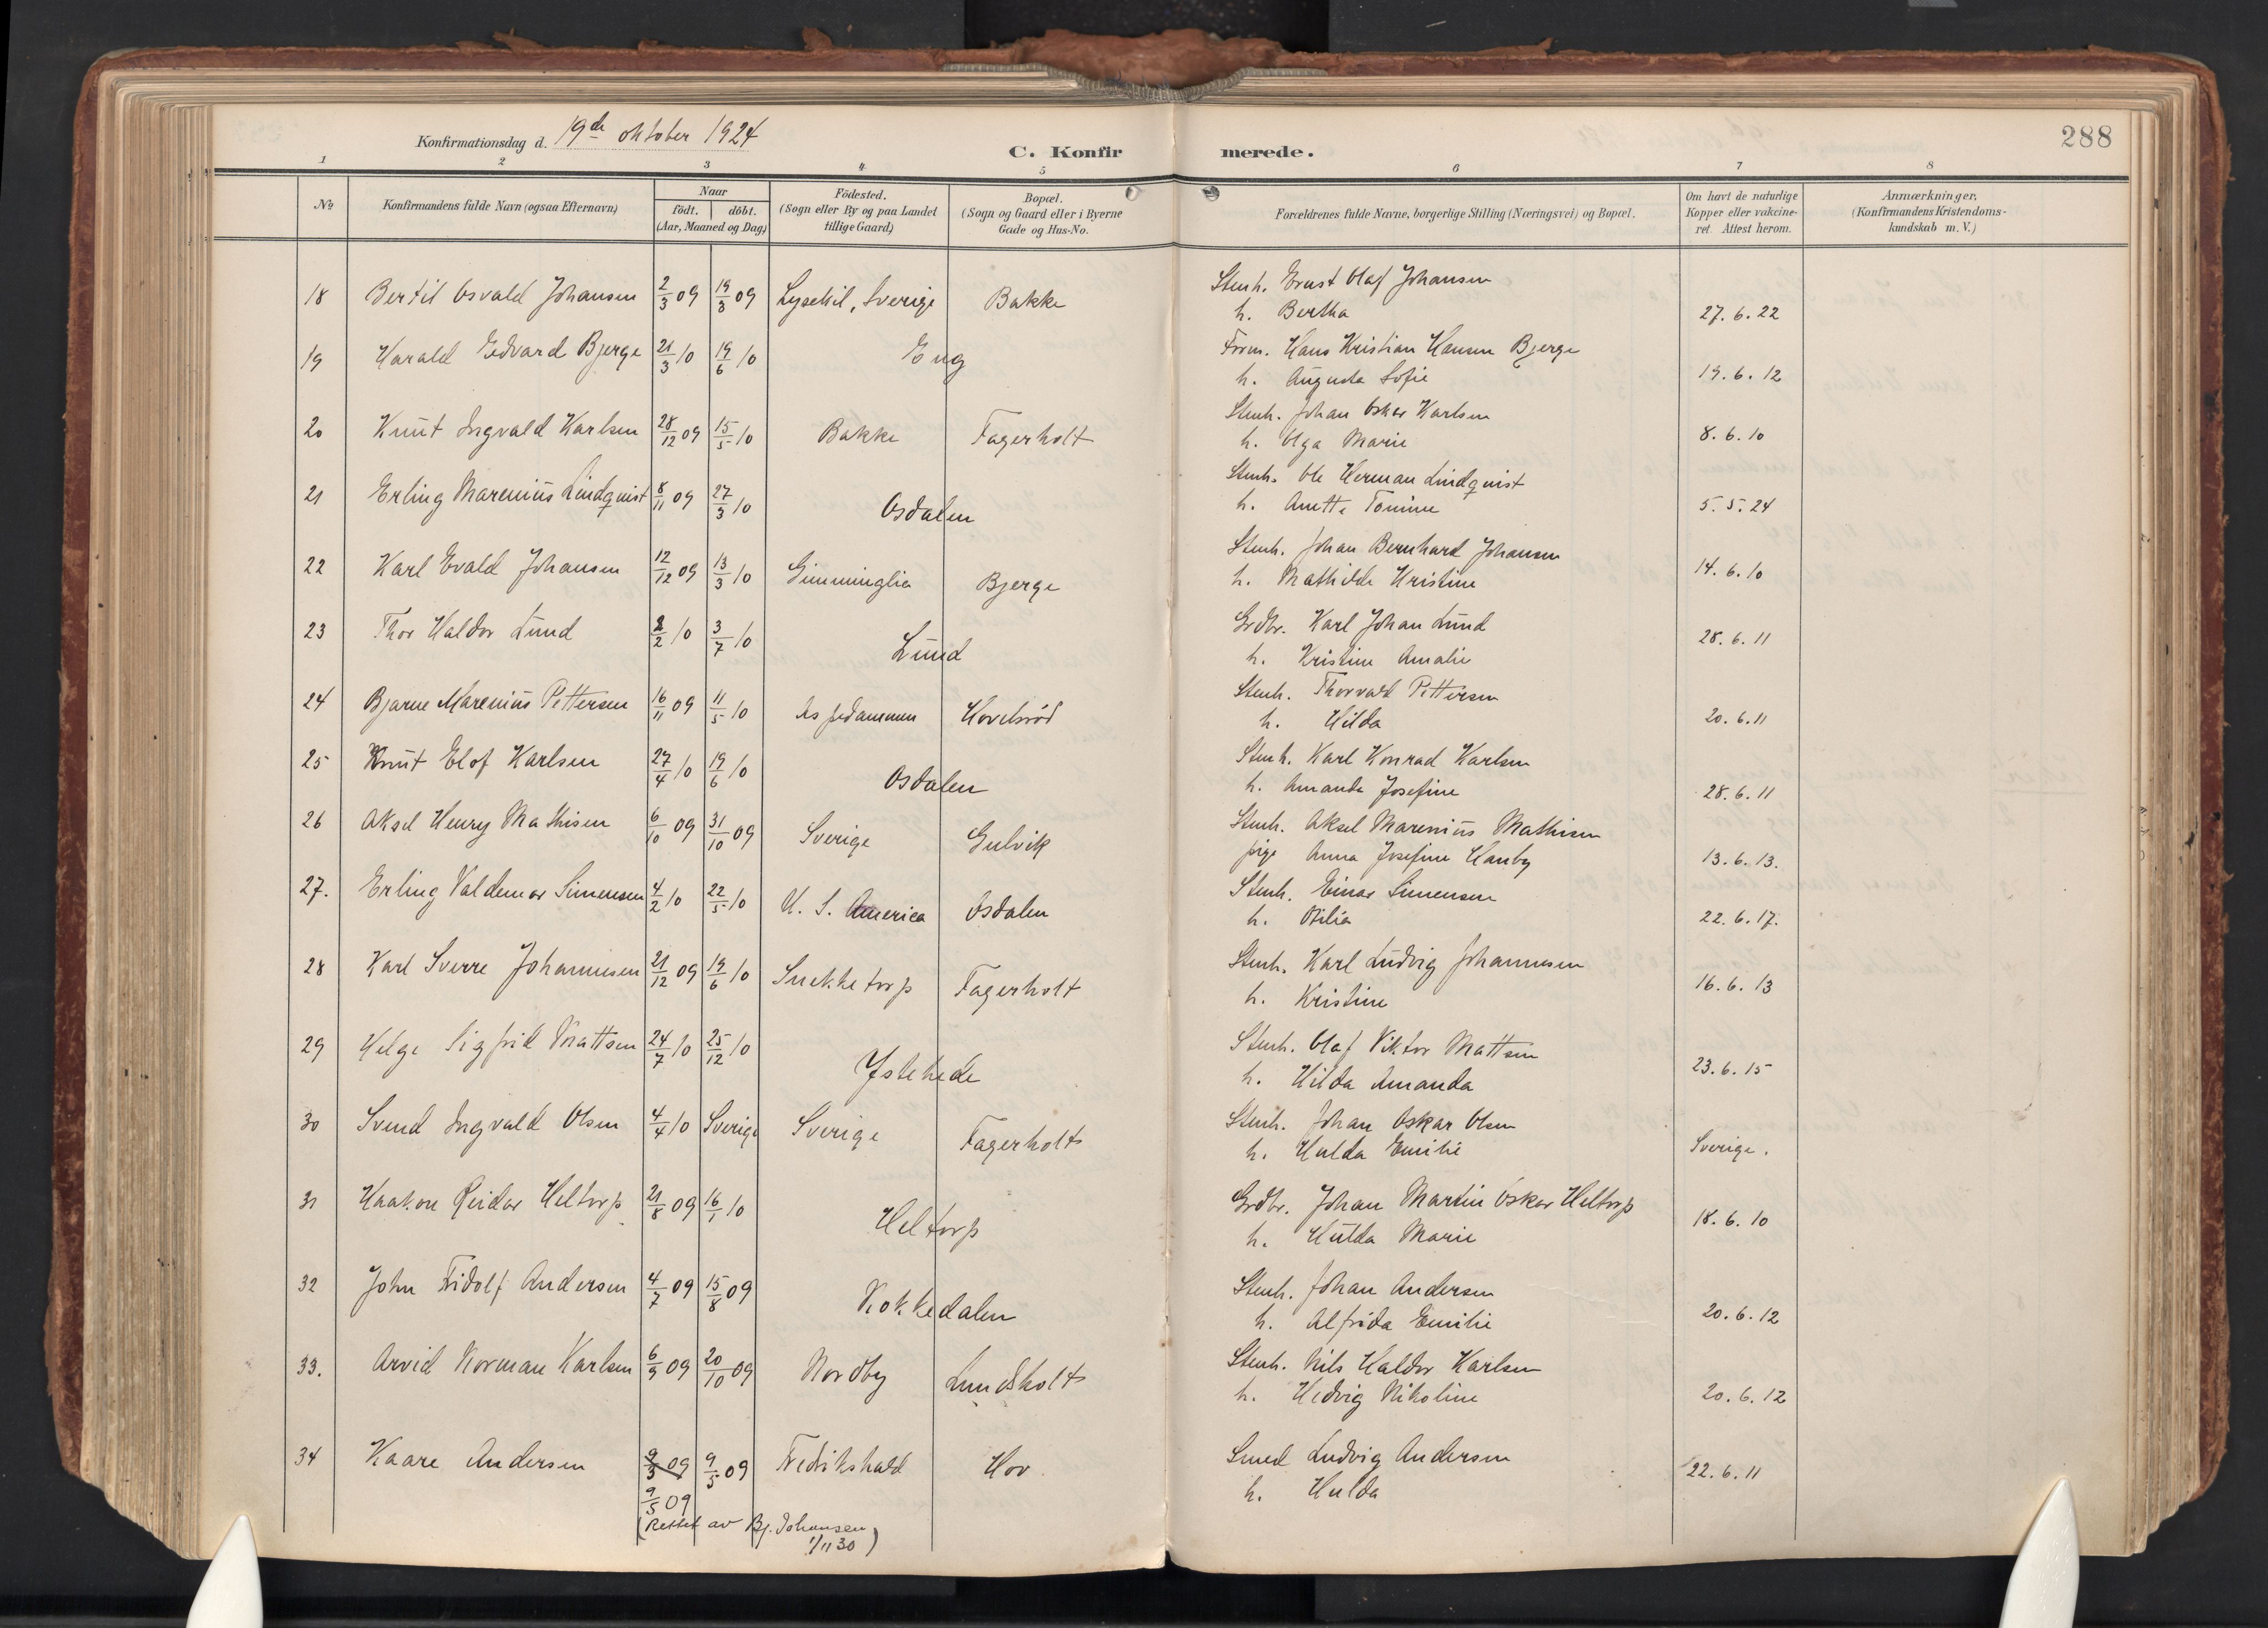 288
Konfirmationsdag d. 19de oktober 1924
C. Konfirmerede.
1 2 3 4 5 6 7 8
No
Konfirmandens fulde Navn (ogsaa Efternavn)
Naar
födt. döbt.
(Aar, Maaned og Dag)
Födested.
(Sogn eller By og paa Landet
tillige Gaard)
Bopæl.
(Sogn og Gaard eller i Byerne
Gade og Hus-No.
Forældrenes fulde Navne, borgerlige Stilling (Næringsvei) og Bopæl.
Om havt de naturlige
Kopper eller vakcine-
ret. Attest herom.
Anmærkninger.
(Konfirmandens Kristendoms-
kundskab m. V.)
18 Bertil Osvald Johansen 2/3 09 19/3 09 Lysekil, Sverige Bakke Stenh. Ernst Olaf Johansen
h. Bertha 27.6.22
19 Harald Edvard Bjerge 21/3 10 19/6 10 Eng Form. Hans Kristian Hansen Bjerge
h. Augusta Sofie 19.6.12
20 Knut Ingvald Karlsen 28/12 09 15/5 10 Bakke Fagerholt Stenh. Johan Oskar Karlsen
h. Olga Marie 8.6.10
21 Erling Marenius Lindquist 8/11 09 27/3 10 Osdalen Stenh. Ole Herman Lindquist
h. Anette Tomine 5.5.24
22 Karl Evald Johansen 12/12 09 13/3 10 Gimminglia Bjerge Stenh. Johan Bernhard Johansen
h. Mathilde Kristine 14.6.10
23 Thor Haldor Lund 2/2 10 3/7 10 Lund Grdbr. Karl Johan Lund
h. Kristine Amalie 28.6.11
24 Bjarne Marenius Pettersen 16/11 09 11/5 10 Aspedammen Hovelsröd Stenh. Thorvald Pettersen
h. Hilda 20.6.11
25 Knut Elof Karlsen 27/4 10 19/6 10 Osdalen Stenh. Karl Konrad Karlsen
h. Amanda Josefine 28.6.11
26 Aksel Henry Mathisen 6/10 09 31/10 09 Sverige Gulvik Stenh. Aksel Marenius Mathisen
pige Anna Josefine Hanby 13.6.13.
27. Erling Valdemar Simensen 4/2 10 22/5 10 U. S. America Osdalen Stenh. Einar Simensen
h. Otilia 22.6.17.
28 Karl Sverre Johannesen 21/12 09 19/6 10 Snekketorp Fagerholt Stenh. Karl Ludvig Johannesen
h. Kristine 16.6.13
29 Helge Sigfrid Mattsen 24/7 10 25/12 10 Ystehede Stenh. Olaf Viktor Mattsen
h. Hilda Amanda 23.6.15
30 Svend Ingvald Olsen 4/4 10 Sverige Sverige Fagerholt Stenh. Johan Oskar Olsen
h. Hulda Emilie Sverige.
31 Haakon Reidar Heltorp 21/8 09 16/1 10 Heltorp Grdbr. Johan Martin Oskar Heltorp
h. Hulda Marie 18.6.10
32 John Fridolf Andersen 4/7 09 15/8 09 Kokkedalen Stenh. Johan Andersen
h. Alfrida Emilie 20.6.12
33. Arvid Norman Karlsen 6/9 09 20/10 09 Nordby Lundsholt Stenh. Nils Haldor Karlsen
h. Hedvig Nikoline 20.6.12
34 Kaare Andersen 9/3 09 9/5 09 Fredrikshald Hov. Smed Ludvig Andersen
9/5 09 h. Hulda 22.6.11
(Rettet av Bj. Johansen
1/11 30)